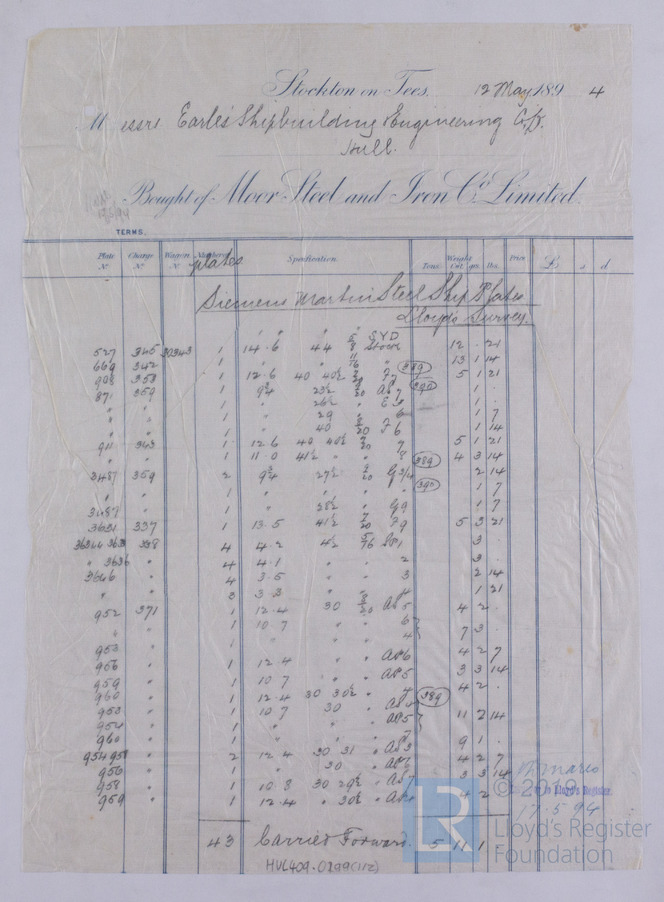 Stockton on Tees. 12 May 1894
Messrs Earle's Shipbuilding & Engineering Co Ld.
Hull.
Bought of Moor Steel and Iron Co. Limited.
TERMS.
Plate No Charge No Wagon No Number plates Specification Tons Weight Cwt. qrs. lbs. Price £ s d
Siemens Martin Steel Ship Plates
Lloyd's Survey.
SYD
527 345 30343 1 14.6 44 5/8 Stock 12 . 21
669 342 1 " " 11/16 13 1 14
908 358 1 12.6 40 40½ F7 389 5 1 21
871 359 1 9¾ 23½ 390 1 .
" " 1 " 26½ 1 .
" " 1 " 29 " 6 1 7
" " 1 " 40 F6 1 14
911 363 1 12.6 40 40½ 7 5 1 21
" " 1 11.0 41½ " 8 389 4 3 14
3487 359 2 9¾ 27½ 2 14
" " 1 " " " 390 1 7
3488 " 1 " 28½ " G9 1 7
3631 337 1 13.5 41½ F9 5 3 21
338 4 4.2 4½ 5/16 3 .
" 3636 " 4 4.1 " " 2 3 .
3646 " 4 3.5 " " 3 2 14
" " 3 3.3 " " 4 1 21
952 371 1 12.4 30 5 4 2 .
" " 1 10.7 " " 6
" 1 " " " 4 7 3 .
953 " 1 12.4 " " 6 4 2 7
956 " 1 10.7 " " 5 3 3 14
959 " 1 12.4 30 30½ " 4 389 4 2 .
960 " 1 10.7 30 "
953 " 1 " " 5 11 2 14
954 " 1 " "
960 " 1 " " 7 9 1
954 958 " 2 12.4 30 31 " 3
956 " 1 " 30 " 4 2 7
958 " 1 10.8 30 29½ " 7 3 3 14
959 " 1 12.4 " 30½ " 4 2
43 Carried Forward. 5 11 1
to Lloyd's Register.
17.5.94
HUL409.0299(112)
© 2019
LR
Lloyd's Register
Foundation